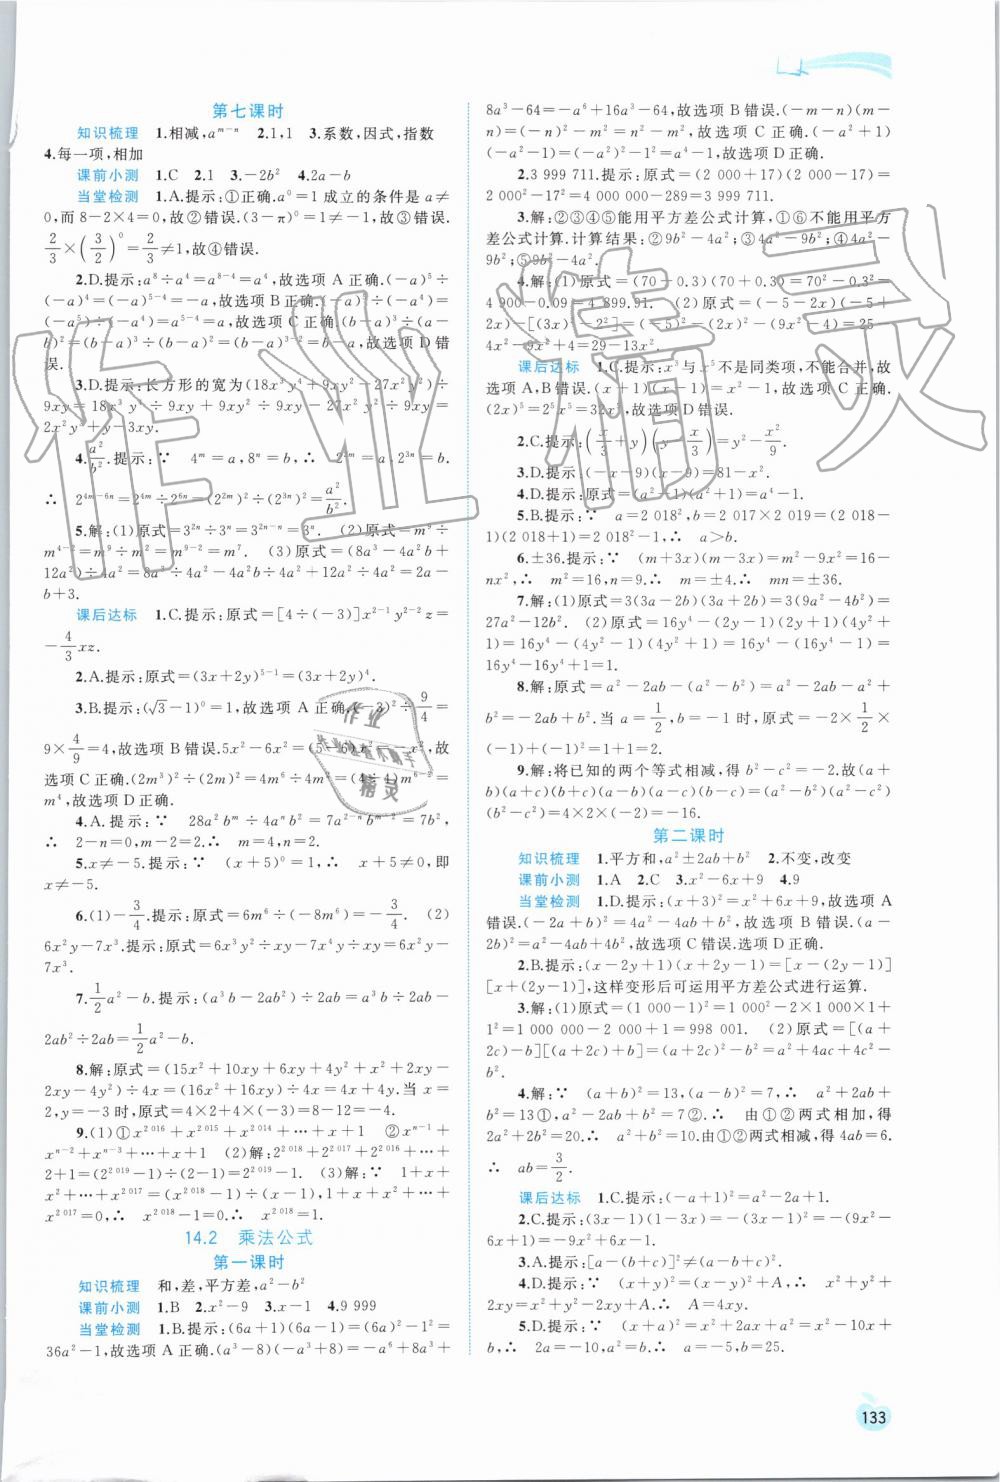 第七课时
知识梳理 1.相减,a^{m-n} 2.1,1 3.系数,因式,指数
4.每一项,相加
课前小测 1.C 2.1 3.-2b² 4.2a-b
当堂检测 1.A.提示:①正确.a⁰=1 成立的条件是 a≠
0,而 8-2×4=0,故②错误.(3-π)⁰=1,故③错误.
2/3×(3/2)⁰=2/3≠1,故④错误.
2.D.提示:a⁸÷a⁴=a^{8-4}=a⁴,故选项 A 正确.(-a)⁵÷
(-a)⁴=(-a)^{5-4}=-a,故选项 B 正确.(-a)⁵÷(-a)=
(-a⁵)÷(-a)=a^{5-4}=a,故选项 C 正确.(b-a)³÷(a-
b)²=(b-a)³÷(b-a)²=(b-a)^{3-2}=b-a,故选项 D 错
误.
3.D.提示:长方形的宽为(18x³y⁴+9xy²-27x²y²)÷
9xy=18x³y⁴÷9xy+9xy²÷9xy-27x²y²÷9xy=
2x²y³+y-3xy.
4.a²/b².提示:∵ 4ᵐ=a,8ⁿ=b,∴ 2^{2m}=a,2^{3n}=b.
∴ 2^{4m-6n}=2^{4m}÷2^{6n}=(2^{2m})²÷(2^{3n})²=a²/b².
5.解:(1)原式=3^{2n}÷3ⁿ=3^{2n-n}=3ⁿ. (2)原式=m⁹÷
m^{4-2}=m⁹÷m²=m^{9-2}=m⁷. (3)原式=(8a³-4a²b+
12a²)÷4a²=8a³÷4a²-4a²b÷4a²+12a²÷4a²=2a-
b+3.
课后达标 1.C.提示:原式=[4÷(-3)]x^{2-1}y^{2-2}z=
-4/3xz.
2.A.提示:原式=(3x+2y)^{5-1}=(3x+2y)⁴.
3.B.提示:(√3-1)⁰=1,故选项 A 正确.(-3)²÷9/4=
9×4/9=4,故选项 B 错误.5x²-6x²=(5-6)x²=-x²,故
选项 C 正确.(2m³)²÷(2m)²=4m⁶÷4m²=(4÷4)m^{6-2}=
m⁴,故选项 D 正确.
4.A.提示:∵ 28a²bᵐ÷4aⁿb²=7a^{2-n}b^{m-2}=7b²,
∴ 2-n=0,m-2=2.∴ m=4,n=2.
5.x≠-5.提示:∵ (x+5)⁰=1,∴ x+5≠0,即
x≠-5.
6.(1)-3/4.提示:原式=6m⁶÷(-8m⁶)=-3/4. (2)
6x²y-7x³.提示:原式=6x³y²÷xy-7x⁴y÷xy=6x²y-
7x³.
7.1/2a²-b.提示:(a³b-2ab²)÷2ab=a³b÷2ab-
2ab²÷2ab=1/2a²-b.
8.解:原式=(15x²+10xy+6xy+4y²+x²+2xy-
2xy-4y²)÷4x=(16x²+16xy)÷4x=4x+4y.当 x=
2,y=-3 时,原式=4×2+4×(-3)=8-12=-4.
9.(1)①x^{2 016}+x^{2 015}+x^{2 014}+…+x+1 ②x^{n-1}+
x^{n-2}+x^{n-3}+…+x+1 (2)解:2^{2 018}+2^{2 017}+2^{2 016}+…+
2+1=(2^{2 019}-1)÷(2-1)=2^{2 019}-1. (3)解:∵ 1+x+
x²+…+x^{2 017}=(x^{2 018}-1)÷(x-1),1+x+x²+…+
x^{2 017}=0,∴ x^{2 018}-1=0.∴ x^{2 018}=1.
14.2 乘法公式
第一课时
知识梳理 和,差,平方差,a²-b²
课前小测 1.B 2.x²-9 3.x-1 4.9 999
当堂检测 1.B.提示:(6a+1)(6a-1)=(6a)²-1²=
36a²-1,故选项 A 正确.(a³-8)(-a³+8)=-a⁶+8a³+
8a³-64=-a⁶+16a³-64,故选项 B 错误.(-m-n)(m-
n)=(-n)²-m²=n²-m²,故选项 C 正确.(-a²+1)
(-a²-1)=(-a²)²-1²=a⁴-1,故选项D正确.
2.3 999 711.提示:原式=(2 000+17)(2 000-17)=
2 000²-17²=4 000 000-289=3 999 711.
3.解:②③④⑤能用平方差公式计算,①⑥不能用平方
差公式计算.计算结果:②9b²-4a²;③4a²-9b²;④4a²-
9b²;⑤9b²-4a².
4.解:(1)原式=(70-0.3)(70+0.3)=70²-0.3²=
4 900-0.09=4 899.91. (2)原式=(-5-2x)(-5+
2x)-[(3x)²-2²]=(-5)²-(2x)²-(9x²-4)=25-
4x²-9x²+4=29-13x².
课后达标 1.C.提示:x³与x⁵不是同类项,不能合并,故
选项 A,B错误.(x+1)(x-1)=x²-1,故选项 C 正确.
(2x)⁵=2⁵x⁵=32x⁵,故选项 D 错误.
2.C.提示:(x/3+y)(y-x/3)=y²-x²/9.
3.D.提示:(-x-9)(x-9)=81-x².
4.D.提示:原式=(a²-1)(a²+1)=a⁴-1.
5.B.提示:∵ a=2 018²,b=2 017×2 019=(2 018-
1)(2 018+1)=2 018²-1,∴ a>b.
6.±36.提示:∵ (m+3x)(m-3x)=m²-9x²=16-
nx²,∴ m²=16,n=9.∴ m=±4.∴ mn=±36.
7.解:(1)原式=3(3a-2b)(3a+2b)=3(9a²-4b²)=
27a²-12b². (2)原式=16y⁴-(2y-1)(2y+1)(4y²+
1)=16y⁴-(4y²-1)(4y²+1)=16y⁴-(16y⁴-1)=
16y⁴-16y⁴+1=1.
8.解:原式=a²-2ab-(a²-b²)=a²-2ab-a²+
b²=-2ab+b².当 a=1/2,b=-1 时,原式=-2×1/2×
(-1)+(-1)²=1+1=2.
9.解:将已知的两个等式相减,得 b²-c²=-2.故(a+
b)(a+c)(b+c)(a-b)(a-c)(b-c)=(a²-b²)(a²-c²)
(b²-c²)=4×2×(-2)=-16.
第二课时
知识梳理 1.平方和,a²±2ab+b² 2.不变,改变
课前小测 1.A 2.C 3.x²-6x+9 4.9
当堂检测 1.D.提示:(x+3)²=x²+6x+9,故选项 A
错误.(-2a+b)²=4a²-4ab+b²,故选项 B 错误.(a-
2b)²=a²-4ab+4b²,故选项 C错误.选项 D 正确.
2.B.提示:(x-2y+1)(x+2y-1)=[x-(2y-1)]
[x+(2y-1)],这样变形后可运用平方差公式进行运算.
3.解:(1)原式=(1 000-1)²=1 000²-2×1 000×1+
1²=1 000 000-2 000+1=998 001. (2)原式=[(a+
2c)-b][(a+2c)+b]=(a+2c)²-b²=a²+4ac+4c²-
b².
4.解:∵ (a+b)²=13,(a-b)²=7,∴ a²+2ab+
b²=13①,a²-2ab+b²=7②.∴ 由①②两式相加,得
2a²+2b²=20.∴ a²+b²=10.由①②两式相减,得 4ab=6.
∴ ab=3/2.
课后达标 1.C.提示:(-a+1)²=a²-2a+1.
2.C.提示:(3x-1)(1-3x)=-(3x-1)²=-(9x²-
6x+1)=-9x²+6x-1.
3.A.提示:[a-(b+c)]²≠(-a+b+c)².
4.D.提示:∵ (x+y)²=(x-y)²+A,∴ x²+y²+
2xy=x²+y²-2xy+A.∴ A=4xy.
5.D.提示:∵ (x+a)²=x²+2ax+a²=x²-10x+
b,∴ 2a=-10,a²=b.∴ a=-5,b=25.
133
作业精灵
作业
作业检查小助手
精灵